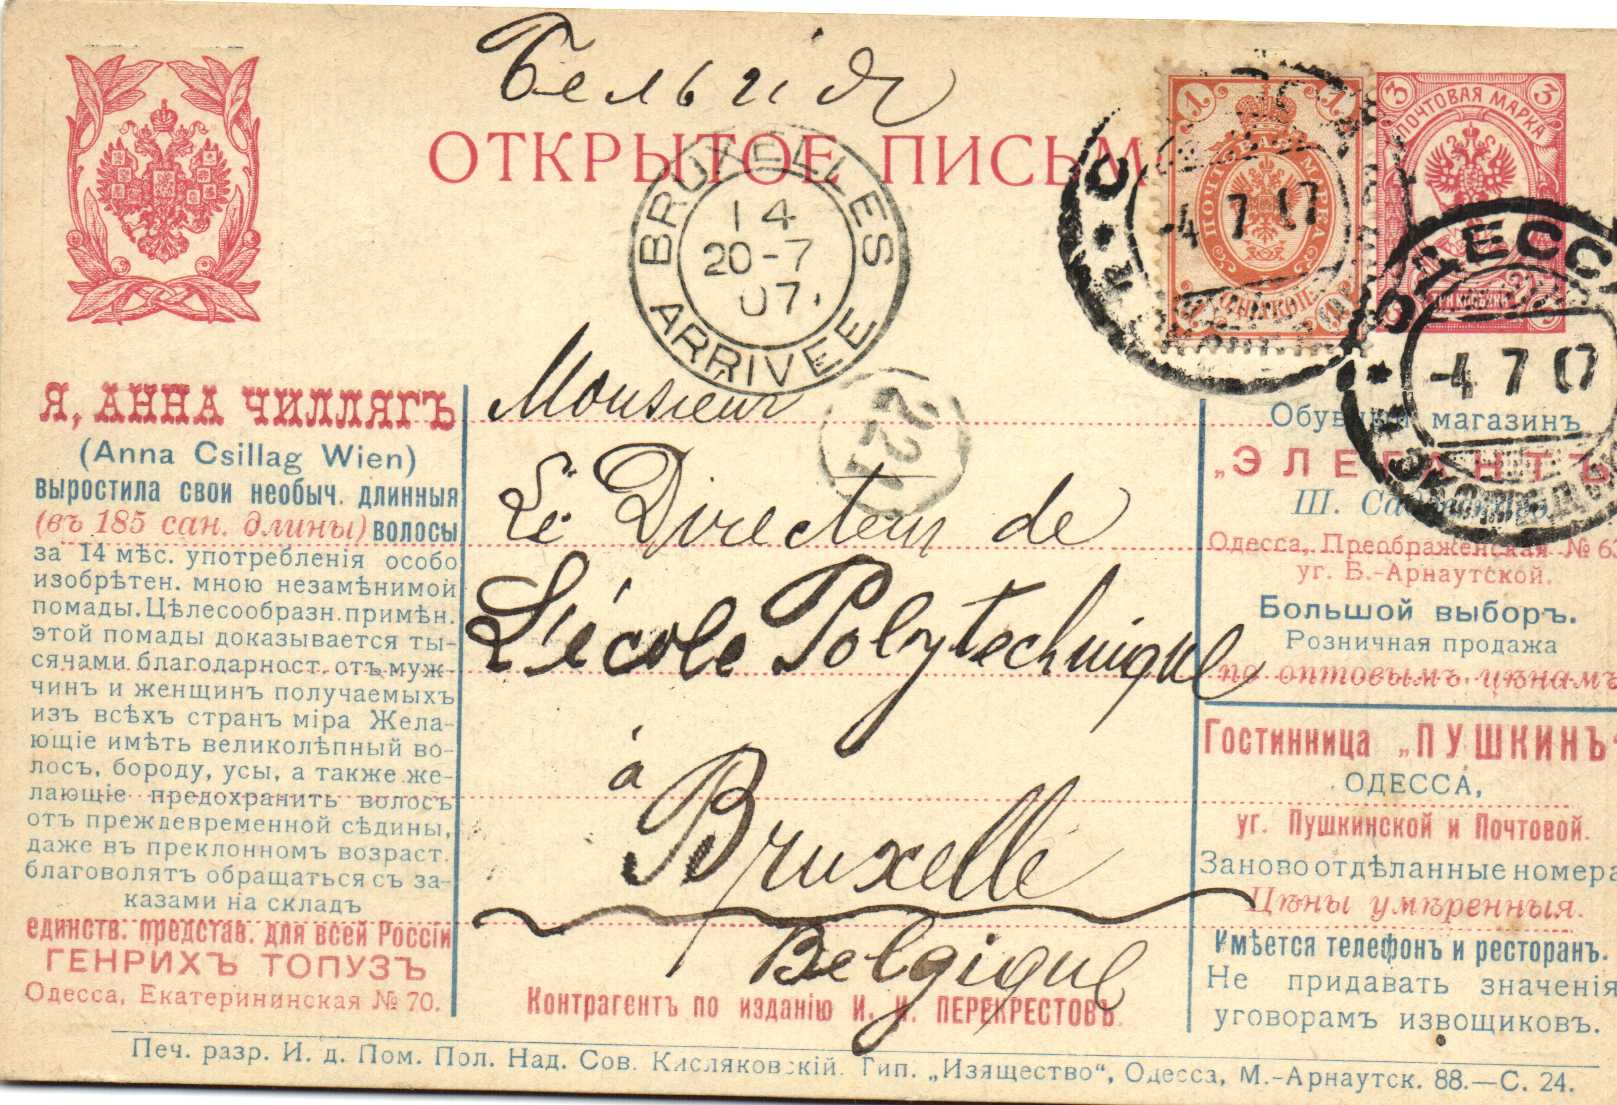 Бельгія
ОТКРЫТОЕ ПИСЬМО
BRUXELLES
14
20-7
07
ARRIVEE
1 1
ПОЧТОВАЯ МАРКА
-4 7 07
3 3
ПОЧТОВАЯ МАРКА
ТРИ КОПѢЙКИ
ОДЕССА
-4 7 07
221
Monsieur
Le Directeur de
L'école Polytechnique
à
Bruxelle
Belgique
Я, АННА ЧИЛЛЯГЪ
(Anna Csillag Wien)
выростила свои необыч. длинныя
(въ 185 сан. длины) волосы
за 14 мѣс. употребленія особо
изобрѣтен. мною незамѣнимой
помады. Цѣлесообразн. примѣн.
этой помады доказывается ты-
сячами благодарност. отъ муж-
чинъ и женщинъ получаемыхъ
изъ всѣхъ странъ міра Жела-
ющіе имѣть великолѣпный во-
лосъ, бороду, усы, а также же-
лающіе предохранить волосъ
отъ преждевременной сѣдины,
даже въ преклонномъ возраст.
благоволятъ обращаться съ за-
казами на складъ
единств. представ. для всей Россіи
ГЕНРИХЪ ТОПУЗЪ
Одесса, Екатерининская № 70.
Обувной магазинъ
„ЭЛЕГАНТЪ
Ш.
Одесса, Преображенская № 62
уг. Б.-Арнаутской.
Большой выборъ.
Розничная продажа
по оптовымъ цѣнамъ
Гостинница „ПУШКИНЪ“
ОДЕССА,
уг. Пушкинской и Почтовой.
Заново отдѣланные номера
Цѣны умѣренныя.
Имѣется телефонъ и ресторанъ.
Не придавать значенія
уговорамъ извощиковъ.
Контрагентъ по изданію И. И. ПЕРЕКРЕСТОВЪ.
Печ. разр. И. д. Пом. Пол. Над. Сов. Кисляковскій. Тип. „Изящество“, Одесса, М.-Арнаутск. 88.—С. 24.